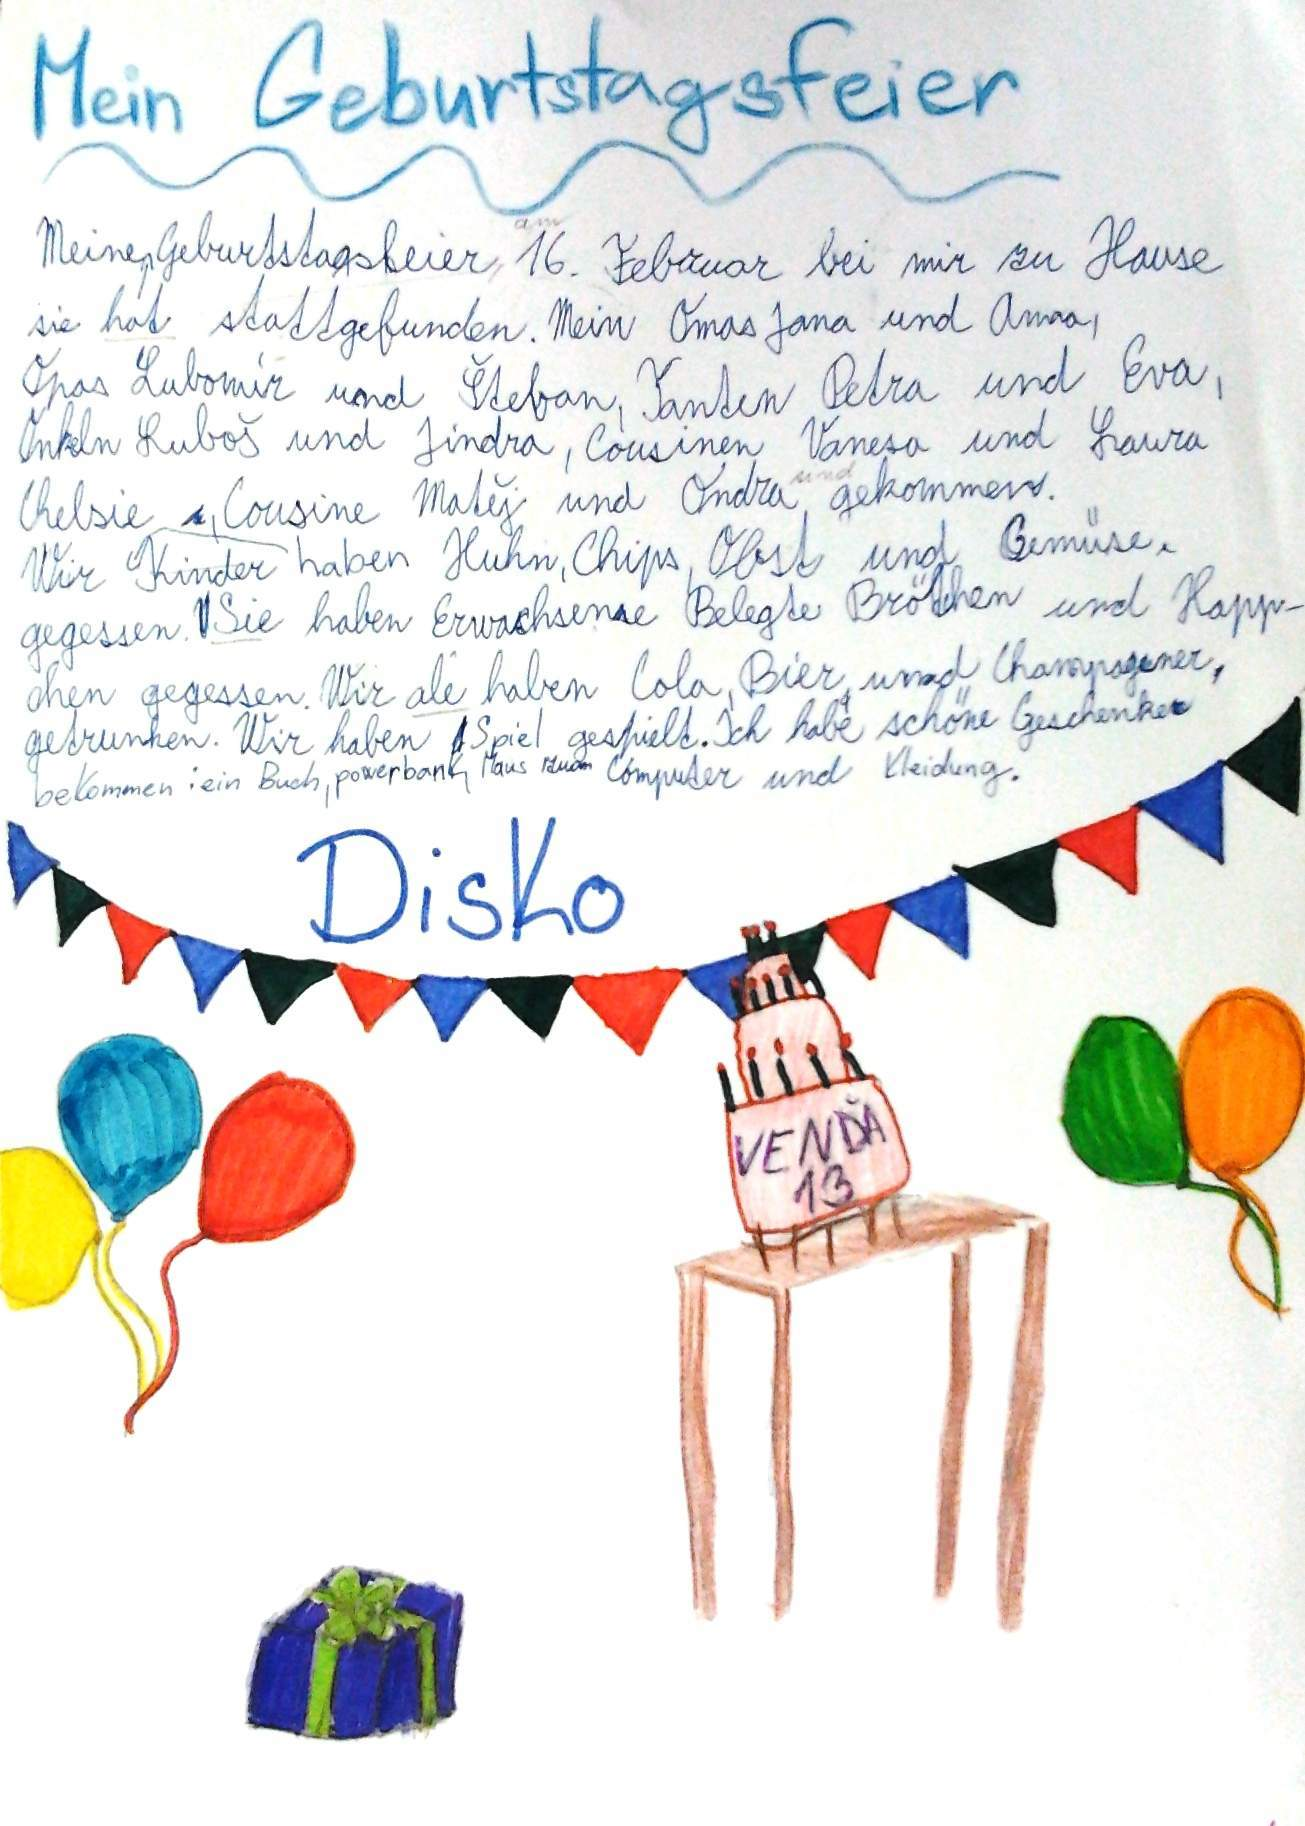 Mein Geburtstagsfeier
am
Meine Geburtstagsfeier, 16. Februar bei mir zu Hause
sie hat stattgefunden. Mein Omas Jana und Anna,
Opas Lubomír und Štefan, Tanten Petra und Eva,
Onkeln Luboš und Jindra, Cousinen Vanesa und Laura
Chelsie, Cousine Matěj und Ondra und gekommen.
Wir Kinder haben Huhn, Chips, Obst und Gemüse.
gegessen. Sie haben Erwachsene Belegte Brötchen und Happ-
chen gegessen. Wir ale haben Cola, Bier, und Champagner,
getrunken. Wir haben Spiel gespielt. Ich habe schöne Geschenke
bekommen: ein Buch, powerbank, Maus zum Computer und Kleidung.
Disko
VENĎA
13